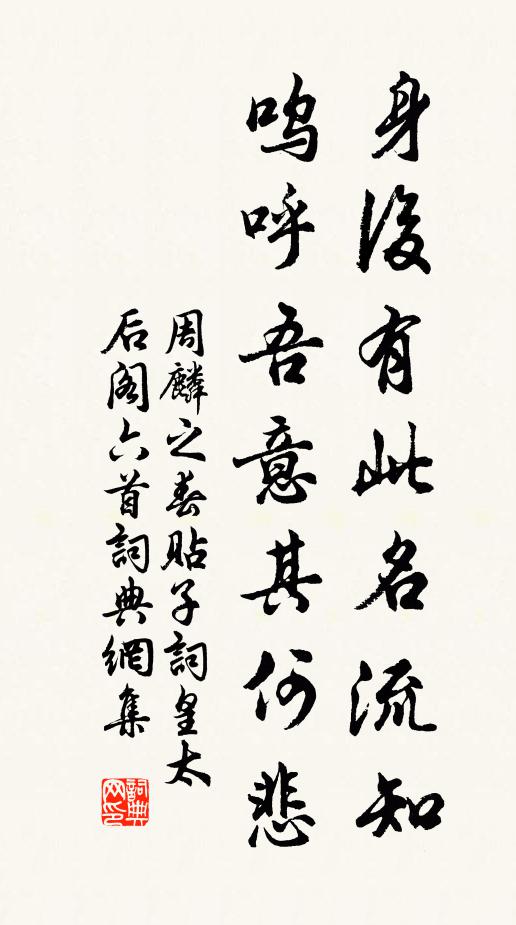 身後有此名流知
嗚呼吾意其何悲
周麟之春貼子詞皇太
后閣六首詞典網集
詞典网印